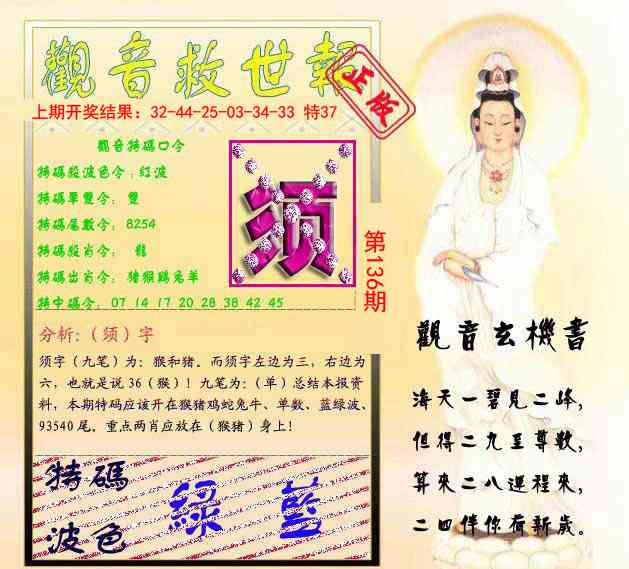 觀音救世報
正版
上期开奖结果：32-44-25-03-34-33 特37
觀音特碼口令
特碼殺波色令：紅波
特碼單雙令：雙
特碼尾數令：8254
特碼殺肖令：龍
特碼出肖令：豬猴鷄兔羊
特中碼令：07 14 17 20 28 38 42 45
须
第136期
分析:（须）字
须字（九笔）为：猴和猪。而须字左边为三，右边为
六，也就是说36（猴）！九笔为：（单）总结本报资
料，本期特码应该开在猴猪鸡蛇兔牛、单数、蓝绿波、
93540尾。重点两肖应放在（猴猪）身上！
特碼
波色
綠 藍
觀音玄機書
海天一碧見二峰，
但得二九至尊數，
算來二八運程來，
二四伴你賀新歲。